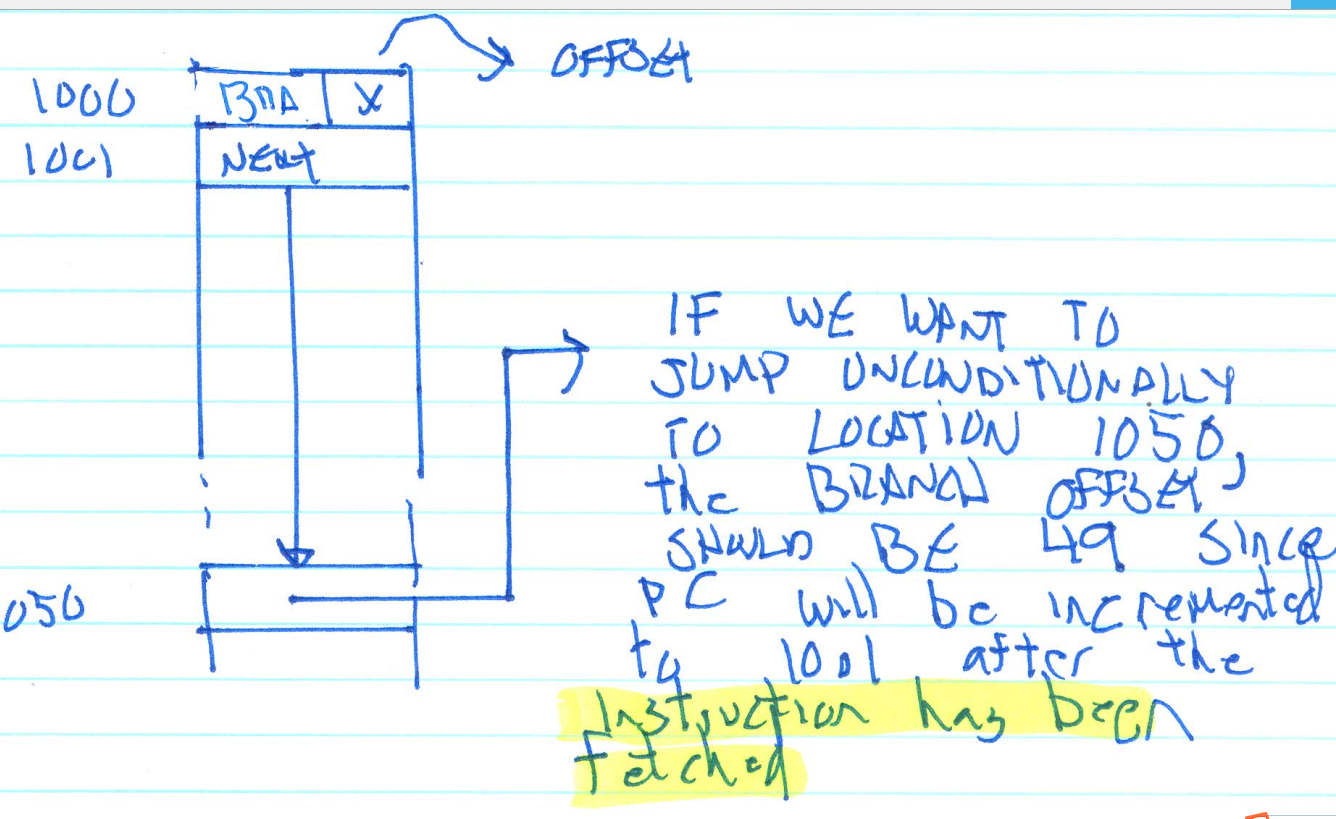 OFFSET
1000 BRA X
1001 NEXT
IF WE WANT TO
JUMP UNCONDITIONALLY
TO LOCATION 1050,
the BRANCH OFFSET
SHOULD BE 49 since
PC will be incremented
to 1001 after the
Instruction has been
fetched
050